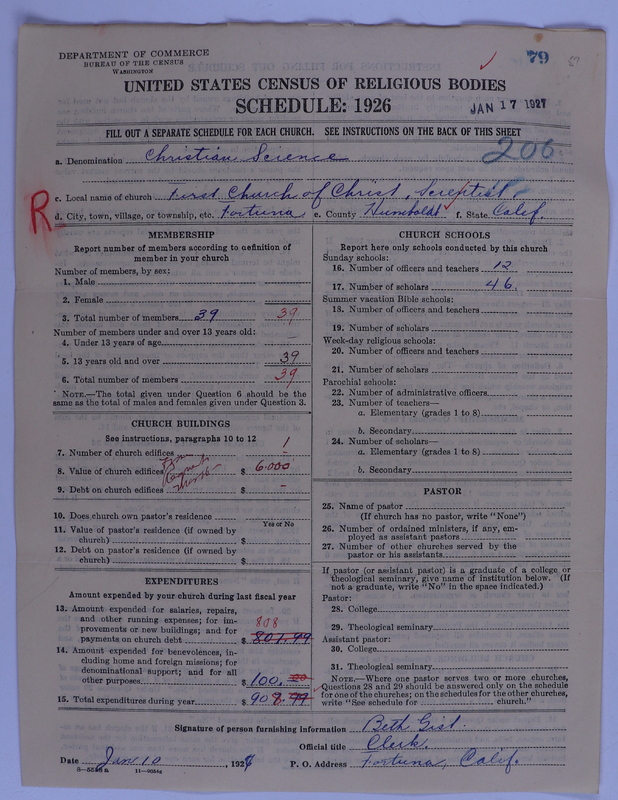 DEPARTMENT OF COMMERCE
BUREAU OF THE CENSUS
WASHINGTON
79
UNITED STATES CENSUS OF RELIGIOUS BODIES
SCHEDULE: 1926
JAN 17 1927
FILL OUT A SEPARATE SCHEDULE FOR EACH CHURCH. SEE INSTRUCTIONS ON THE BACK OF THIS SHEET
a. Denomination Christian Science
206
c. Local name of church First Church of Christ, Scientist,
R
d. City, town, village, or township, etc. Fortuna e. County Humboldt f. State Calif.
MEMBERSHIP
Report number of members according to definition of
member in your church
Number of members, by sex:
1. Male
2. Female
3. Total number of members 39 39
Number of members under and over 13 years old:
4. Under 13 years of age –
5. 13 years old and over 39
6. Total number of members 39
NOTE.—The total given under Question 6 should be
the same as the total of males and females given under Question 3.
CHURCH BUILDINGS
See instructions, paragraphs 10 to 12
7. Number of church edifices 1
8. Value of church edifices $ 6.000
9. Debt on church edifices –
10. Does church own pastor's residence
Yes or No
11. Value of pastor's residence (if owned by
church) $
12. Debt on pastor's residence (if owned by
church) $
EXPENDITURES
Amount expended by your church during last fiscal year
13. Amount expended for salaries, repairs,
and other running expenses; for im-
provements or new buildings; and for
payments on church debt $ 807.99
808
14. Amount expended for benevolences, in-
cluding home and foreign missions; for
denominational support; and for all
other purposes $ 100.00
15. Total expenditures during year $ 908.99
CHURCH SCHOOLS
Report here only schools conducted by this church
Sunday schools:
16. Number of officers and teachers 12
17. Number of scholars 46
Summer vacation Bible schools:
18. Number of officers and teachers
19. Number of scholars
Week-day religious schools:
20. Number of officers and teachers
21. Number of scholars
Parochial schools:
22. Number of administrative officers
23. Number of teachers—
a. Elementary (grades 1 to 8)
b. Secondary
24. Number of scholars—
a. Elementary (grades 1 to 8)
b. Secondary
PASTOR
25. Name of pastor
(If church has no pastor, write "None")
26. Number of ordained ministers, if any, em-
ployed as assistant pastors
27. Number of other churches served by the
pastor or his assistants
If pastor (or assistant pastor) is a graduate of a college or
theological seminary, give name of institution below. (If
not a graduate, write "No" in the space indicated.)
Pastor:
28. College
29. Theological seminary
Assistant pastor:
30. College
31. Theological seminary
NOTE.—Where one pastor serves two or more churches,
Questions 28 and 29 should be answered only on the schedule
for one of the churches; on the schedules for the other churches,
write "See schedule for church."
Signature of person furnishing information Beth Gist.
Official title Clerk.
Date Jan 10, 192 P. O. Address Fortuna, Calif.
11—9084a